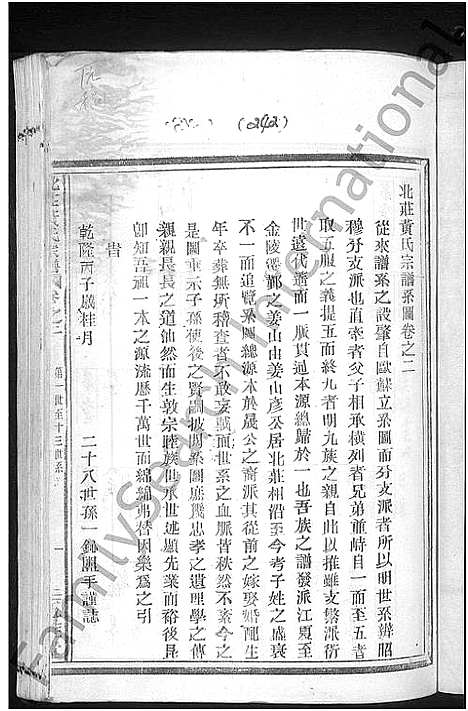 (242)
北莊黃氏宗譜系圖卷之二
從來譜系之設肇自歐蘇立系圖而分支派者所以明世系辨昭
穆分支派也直牽者父子相承橫列者兄弟並峙自一而至五者
取五服之義提五而終九者明九族之親自此以推雖支繁派衍
世遠代遙而一脈貫通本源總歸於一也吾族之譜發派江夏至
金陵遷鄱之姜山由姜山彥公居北莊相沿至今考子姓之盛衰
不一而追覽系圖總源本於晟公之裔派其從前之嫁娶婚配生
年卒葬無所稽查者不敢妄贅而世系之血脈皆秩然不紊今之
是圖垂示子孫使後之賢嗣披閱系圖庶幾忠孝之遺理學之傳
親親長長之道油然而生敦宗睦族世承世述顯先業而裕後昆
卽知吾祖一本之源流歷千萬世而綿綿弗替因樂爲之引
旹
乾隆丙子歲桂月
二十八世孫一錦圖手謹誌
第一世至十三世系
一
FamilySearch International